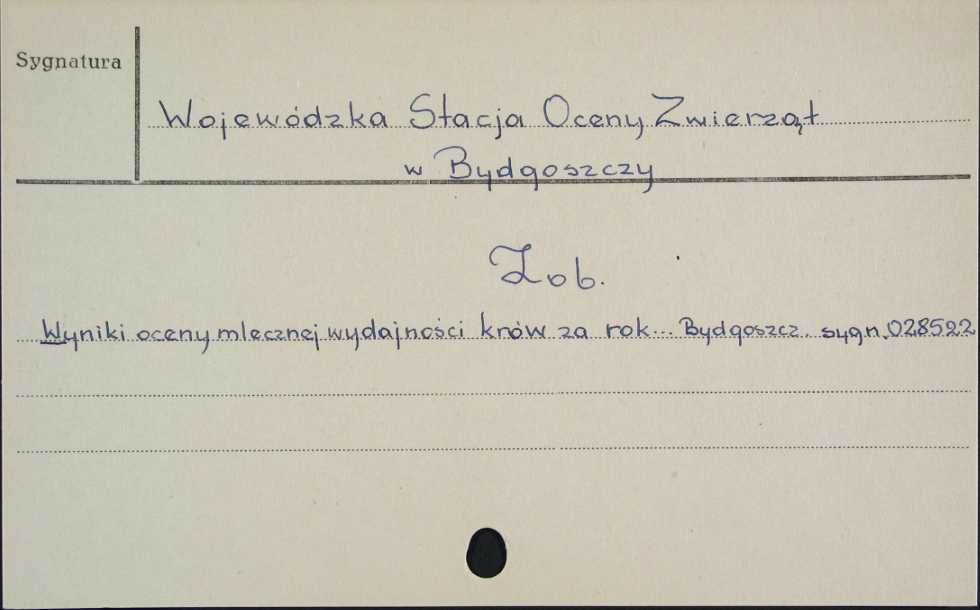 Sygnatura
Wojewódzka Stacja Oceny Zwierząt
w Bydgoszczy
Zob.
Wyniki oceny mlecznej wydajności krów za rok... Bydgoszcz. sygn. 028522